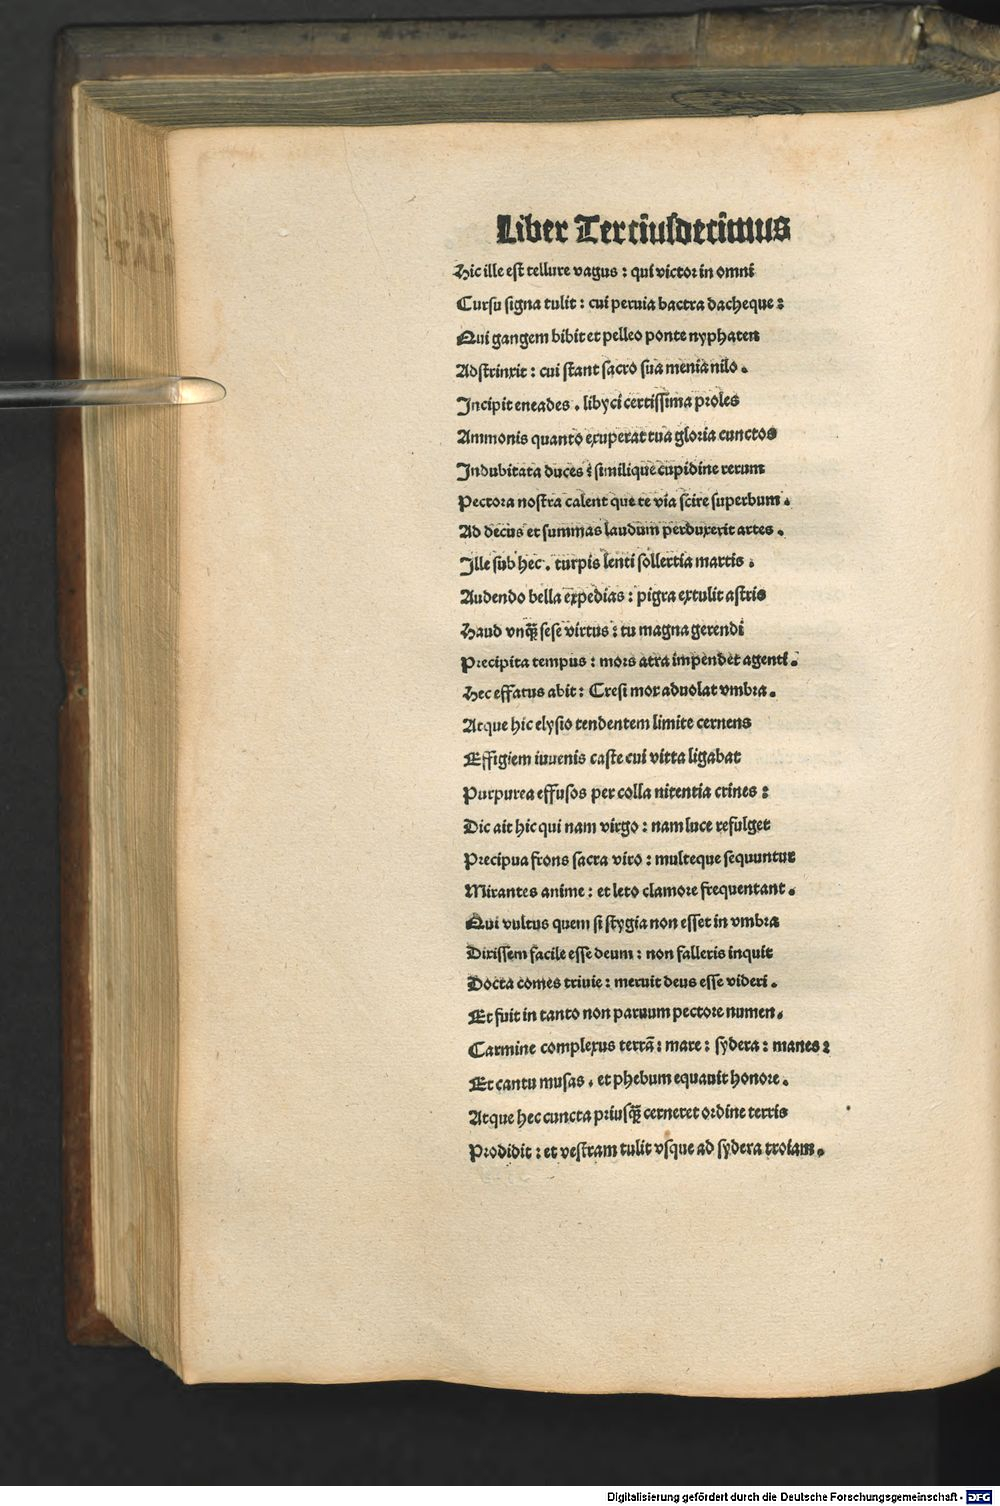 Liber Terciusdecimus
Hic ille est tellure vagus : qui victor in omni
Cursu signa tulit : cui peruia bactra dacheque :
Qui gangem bibit et pelleo ponte nyphaten
Adstrinxit : cui stant sacro sua menia nilo .
Incipit eneades . libyci certissima proles
Ammonis quanto exuperat tua gloria cunctos
Indubitata duces : similique cupidine rerum
Pectora nostra calent que te via scire superbum .
Ad decus et summas laudum perduxerit artes .
Ille sub hec . turpis lenti sollertia martis .
Audendo bella expedias : pigra extulit astris
Haud vnq̄ sese virtus : tu magna gerendi
Precipita tempus : mors atra impendet agenti .
Hec effatus abit : Cresi mox aduolat vmbra .
Atque hic elysio tendentem limite cernens
Effigiem iuuenis caste cui vitta ligabat
Purpurea effusos per colla nitentia crines :
Dic ait hic qui nam virgo : nam luce refulget
Precipua frons sacra viro : multeque sequuntur
Mirantes anime : et leto clamore frequentant .
Qui vultus quem si stygia non esset in vmbra
Dirissem facile esse deum : non falleris inquit
Docta comes triuie : meruit deus esse videri .
Et fuit in tanto non paruum pectore numen .
Carmine complexus terrā : mare : sydera : manes :
Et cantu musas . et phebum equauit honore .
Atque hec cuncta priusq̄ cerneret ordine terris
Prodidit : et vestram tulit vsque ad sydera troiam .
Digitalisierung gefördert durch die Deutsche Forschungsgemeinschaft - DFG